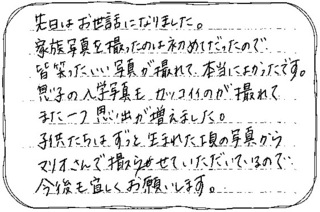 先日はお世話になりました。
家族写真を撮ったのは初めてだったので
皆笑ったいい写真が撮れて本当によかったです。
息子の入学写真も カッコイイのが撮れて
また一つ思い出が増えました。
子供たちはずっと生まれた頃の写真から
マリオさんで撮らせていただいているので
今後も宜しくお願いします。